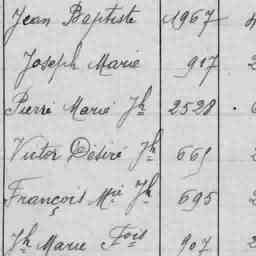 Jean Baptiste 1967
Joseph Marie 917
Pierre Marie Jh 2528
Victor Désiré Jh 669
François Mie Jh 695
Jh Marie Fois 907